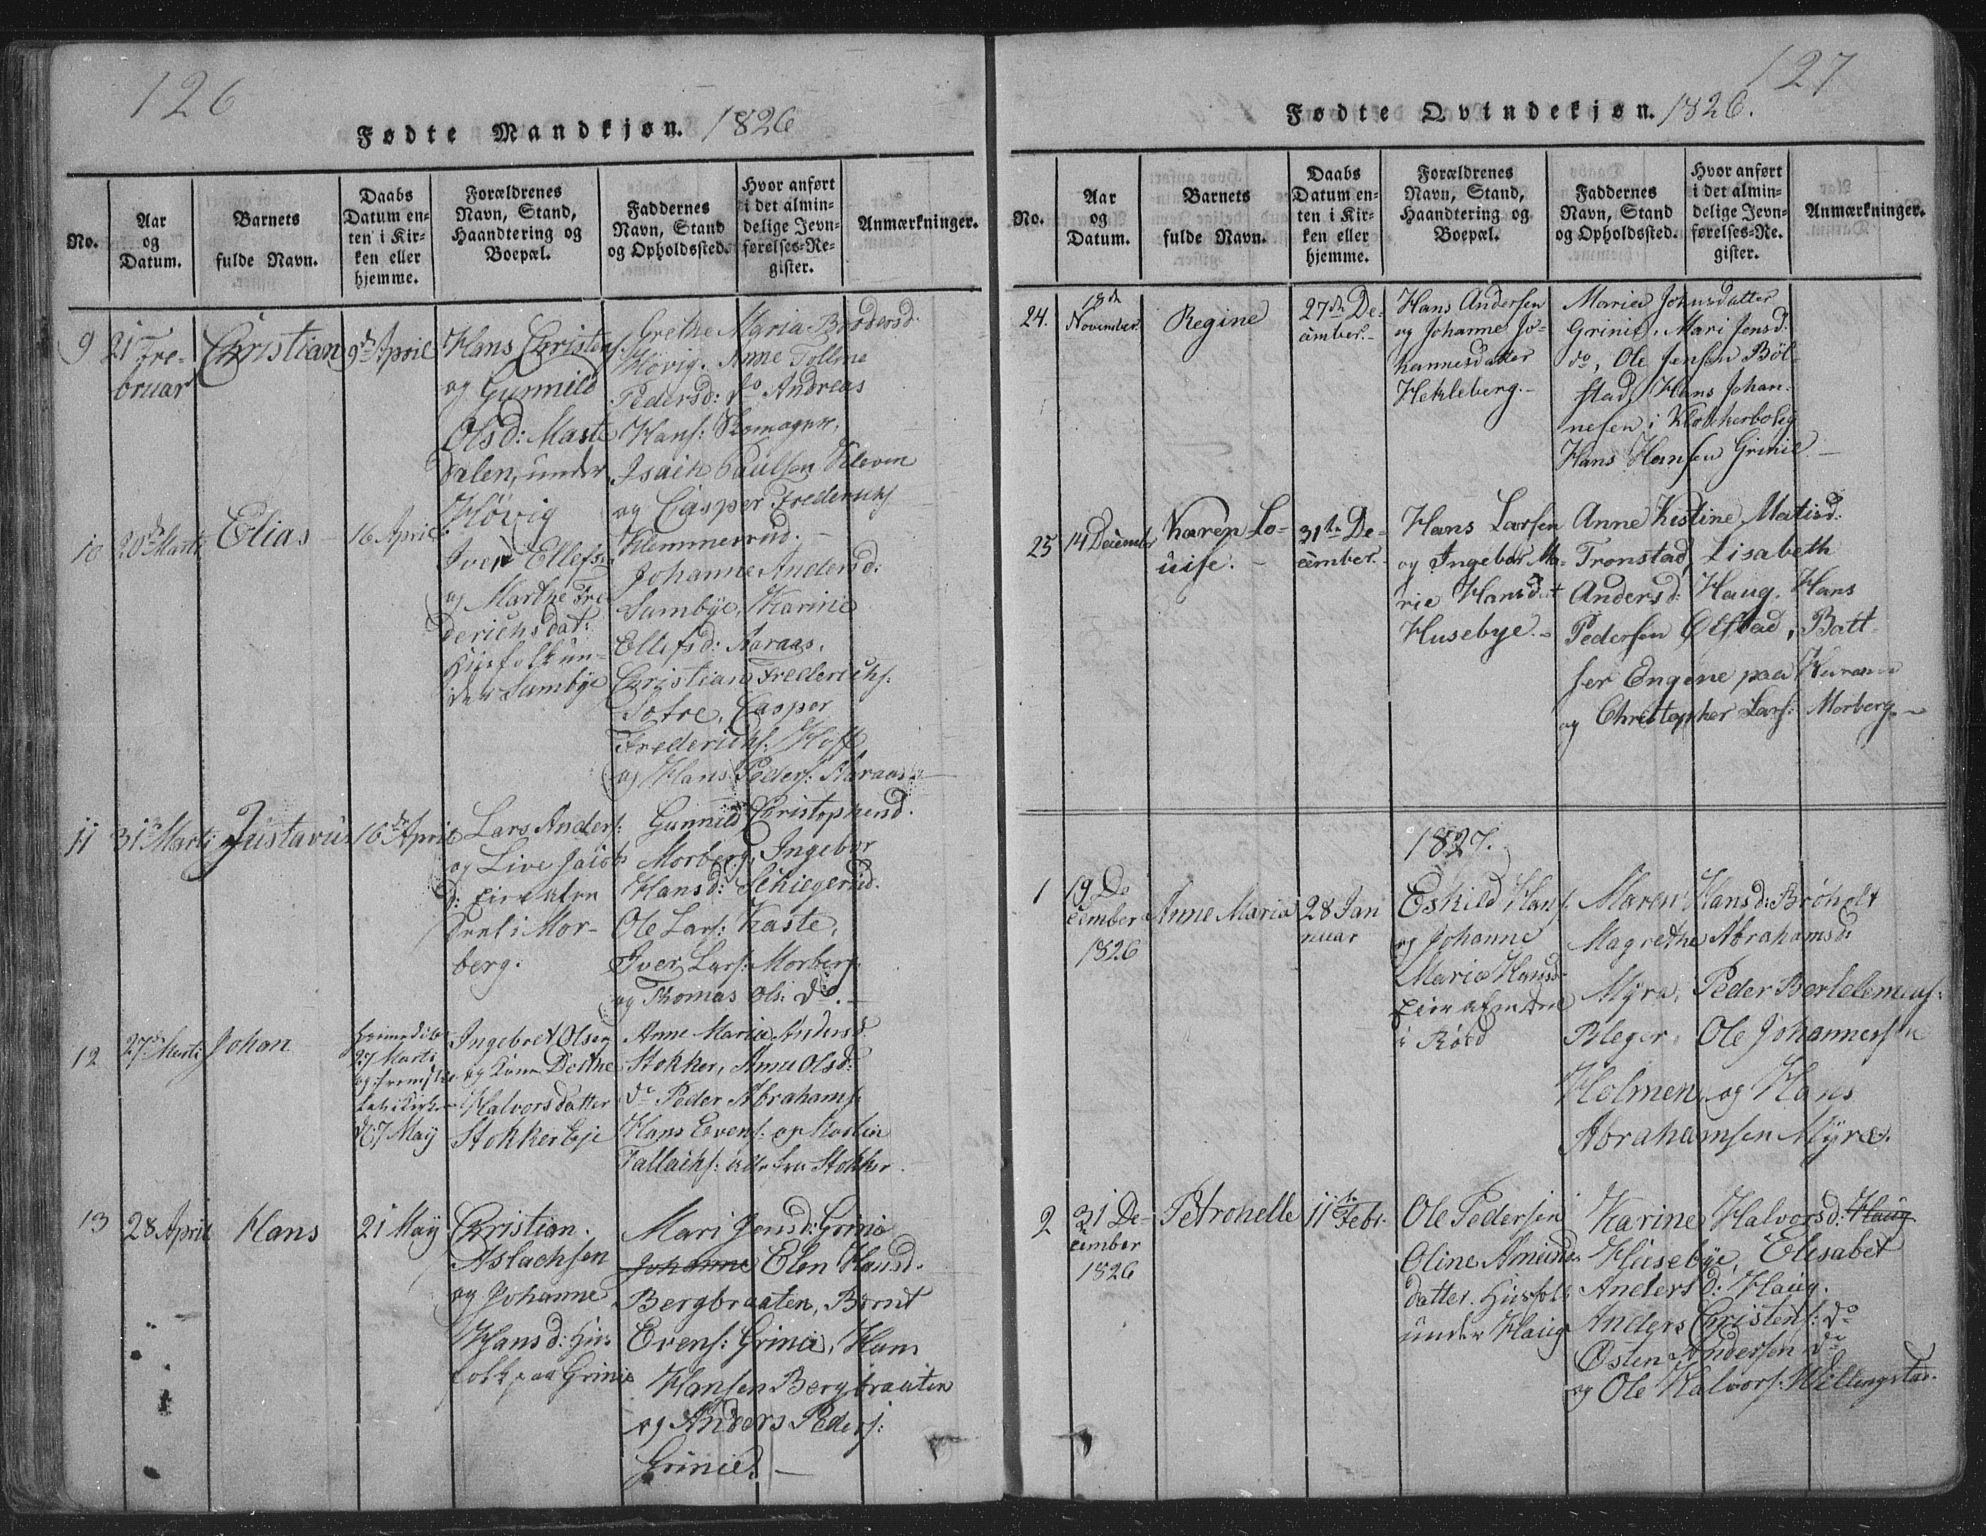 126
Fødte Mandkjøn. 1826
No.
Aar
og
Datum.
Barnets
fulde Navn.
Daabs
Datum en-
ten i Kir-
ken eller
hjemme.
Forældrenes
Navn, Stand,
Haandtering og
Boepæl.
Faddernes
Navn, Stand
og Opholdssted.
Hvor anført
i det almin-
delige Jevn-
førelses-Re-
gister.
Anmærkninger.
9
21 Fe-
bruar
Christian
9de April
Hans Christens:
og Gunnild
Olsd: Maste
dalen, under
Høvig
Grethe Maria Brodersd:
Høvig. Anne Tollene
Pedersd: do Andreas
Hans: Skomager,
Isach Paulsen Kleven
og Casper Frederichs
Klemmerud. -
10
20de Marti
Elias
16 April
Iver Ellefs:
og Marthe Fre
derichsdat:
Huusfolk un-
der Sambye
Johanne Andersd:
Sambye, Karine
Ellefsd: Aaraas.
Christian Frederichs.
Toftre, Casper
Frederichs: Hoff
og Hans Peders: Aaraas. -
11
31 Marti
Justavus
16de April
Lars Anders:
og Live Jacobs
d: Eire af en
Deel i Mor-
berg.
Gunnild Christophersd.
Morberg, Ingebor
Hansd: Schiegerud.
Ole Lars: Kaste,
Iver Lars: Morberg
og Thomas Ols: do. -
12
27de Marti
Johan
hjemedøbt
27 Marti
og fremstil
let i Kirken
d: 7 May
Ingebret Olsen
og Kone Dorthe
Halvorsdatter
Stokker Eje
Anne Maria Andersd
Stokker, Anne Olsd:
do Peder Abrahams:
Hans Evens: og Kostin
Tallachs: alle fra Stokker.
13
28 April
Hans
21 May
Christian
Aslachsen
og Johanne
Hansd: Huus
folk paa Grinie
Mari Jonsd: Grinie
Johanne Elen Hansd.
Bergbraaten, Bernt
Evens: Grinie, Hans
Hansen Bergbraaten
og Anders Peders:
Grinie. -
127
Fødte Qvindekjøn. 1826.
No.
Aar
og
Datum.
Barnets
fulde Navn.
Daabs
Datum en-
ten i Kir-
ken eller
hjemme.
Forældrenes
Navn, Stand,
Haandtering og
Boepæl.
Faddernes
Navn, Stand
og Opholdssted.
Hvor anført
i det almin-
delige Jevn-
førelses-Re-
gister.
Anmærkninger.
24.
18de
November.
Regine
27de De-
cember. -
Hans Andersen
og Johanne Jo-
hannesdatter
Hekleberg. -
Maria Johnsdatter
Grinie, Mari Jensd:
do, Ole Jensen Böl-
stad, Hans Johan-
nesen i Klokkerbolig
Hans Hansen Grinie -
25
14 December
Karen Lo-
uise. -
31te De-
cember. -
Hans Larsen
og Ingebor Ma-
rie Hansdat
Husebye. -
Anne Kistine Matisd:
Tronstad, Lisabeth
Andersd: Haug, Hans
Pedersen Ølstad, Batt-
ser Engene paa Hurum
og Christopher Lars: Morberg. -
1827.
1
19 De
cember
1826
Anne Maria
28 Jan
nuar
Eskild Hans.
og Johanne
Maria Hansd-
Eire af en Deel
i Röed
Maren Hansd: Bröholt
Magrethe Abrahamsd:
Myra, Peder Bertelemeus:
Bleger, Ole Johannessen
Holmen, og Hans
Abrahamsen Myra.
2
31 De-
cember
1826
Petronelle
11te Febr.
Ole Pedersen
Oline Amunds
datter. Huusfolk
under Haug
Karine Halvorsd: Haug
Husebye, Elisabet
Andersd: Haug.
Anders Christens: do
Østen Andersen do
og Ole Halvors: Willingstad.